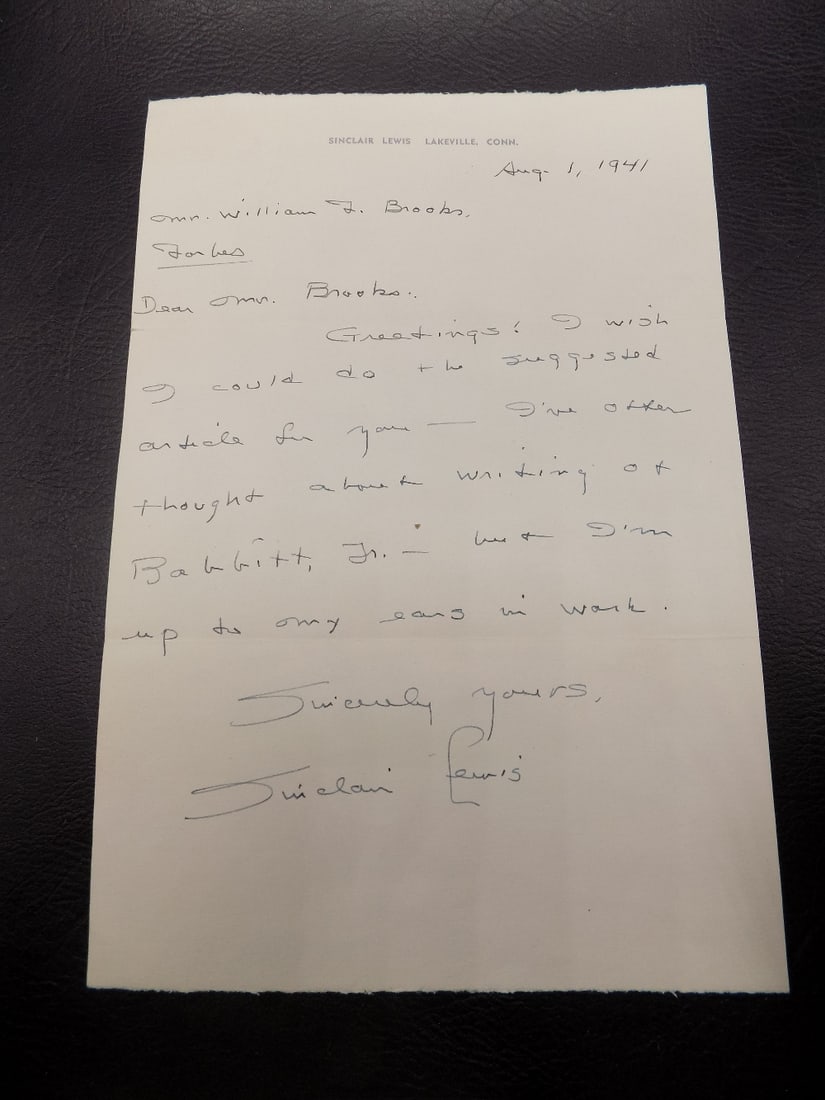 SINCLAIR LEWIS LAKEVILLE, CONN.
Aug 1, 1941
Mr. William F. Brooks,
Forbes
Dear Mr. Brooks:
Greetings! I wish
I could do the suggested
article for you — I've often
thought about writing of
Babbitt, Jr. — but I'm
up to my ears in work.
Sincerely yours,
Sinclair Lewis